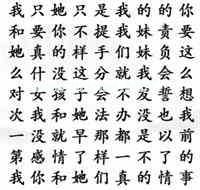 我只她只是我的的你
和要你不提我妹责要
她真的样手们妹负么
么什没这分就我会么
对女孩子会不应誓想
次我和她法办没也我
一没就早那都是以前
第感情了样一不了的
我你和她们真的情事